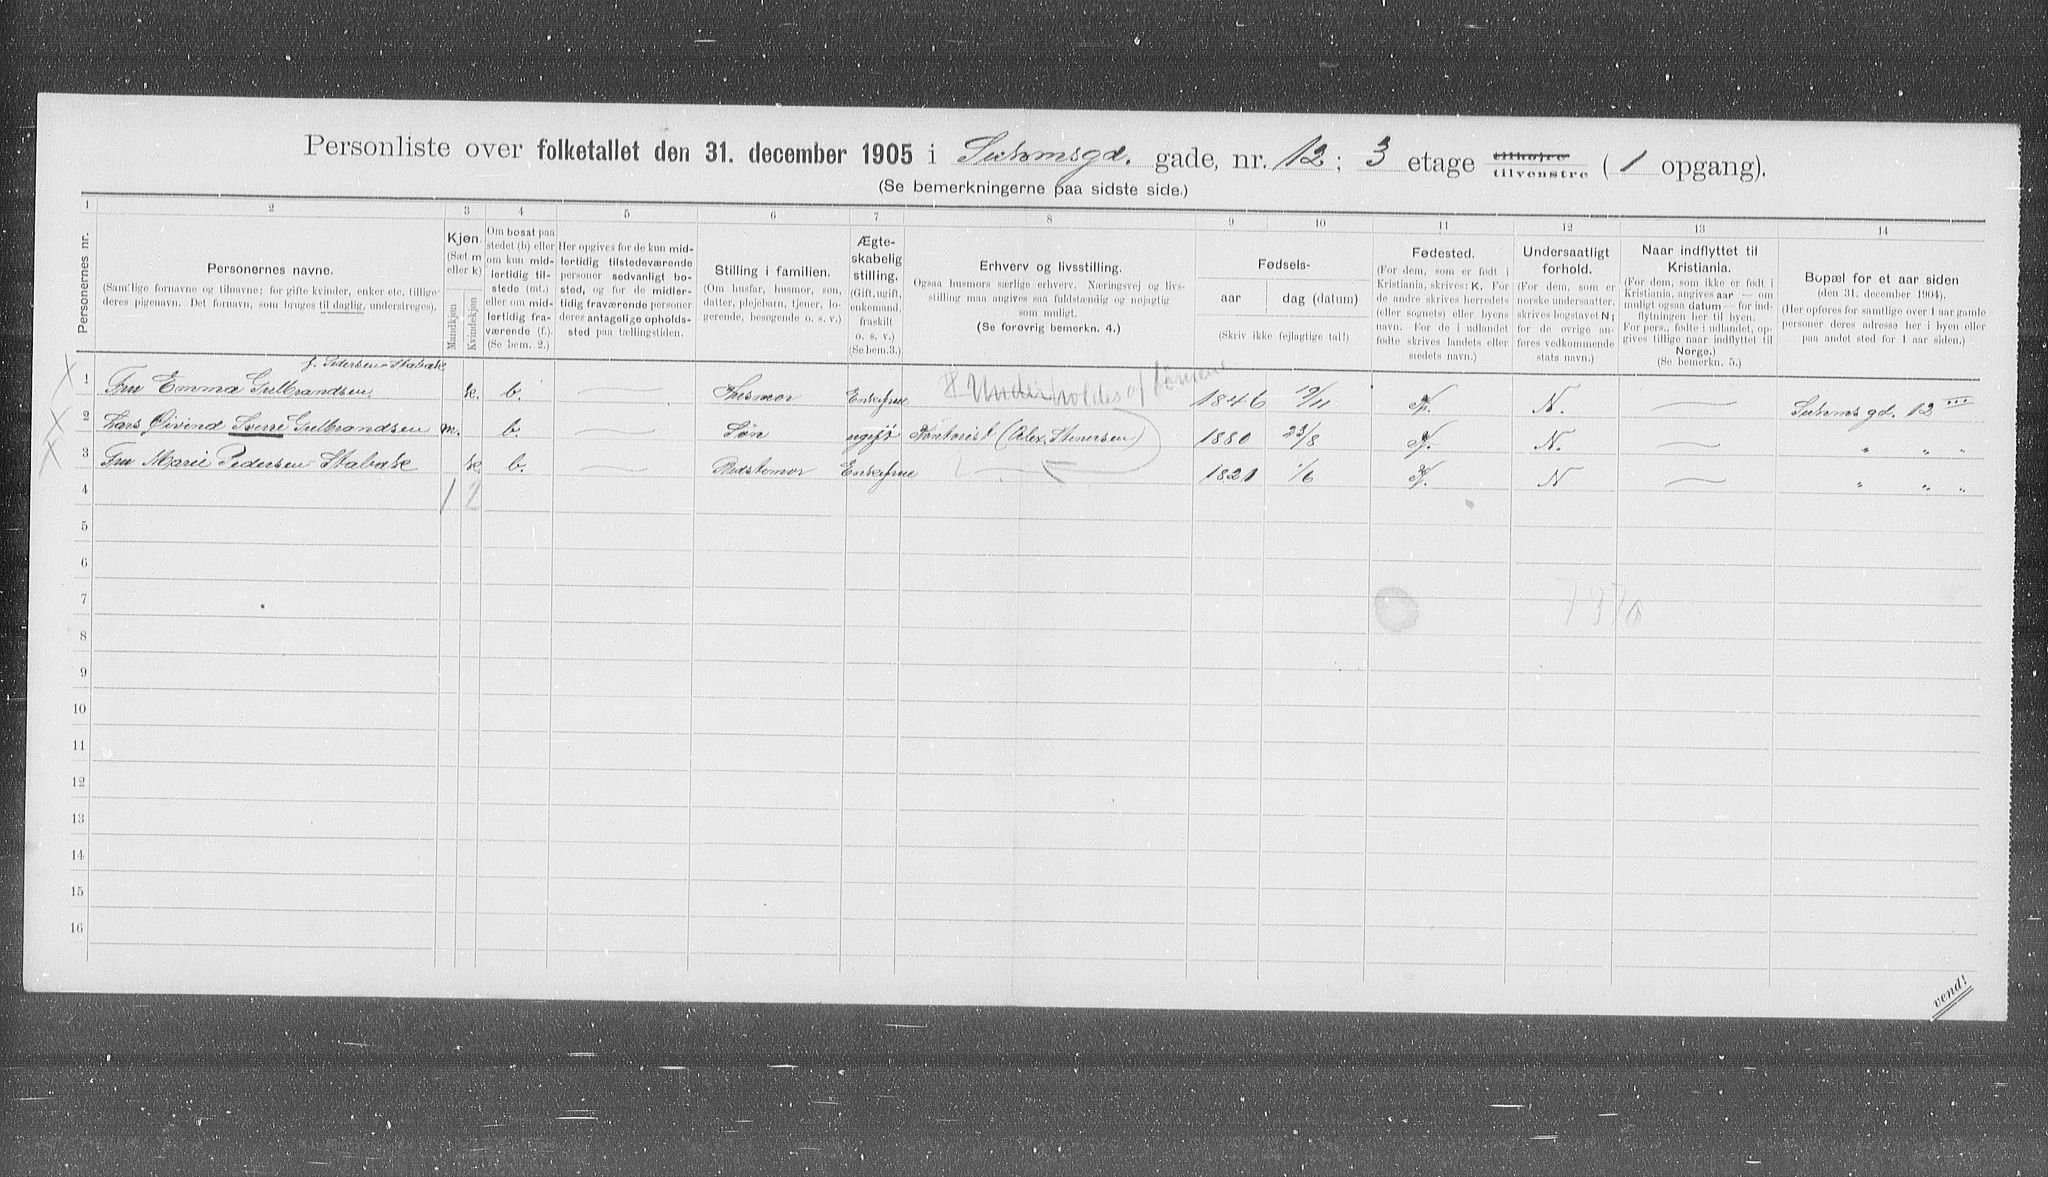 Personliste over folketallet den 31. december 1905 i Suhmsgd. gade, nr. 12; 3 etage tilhøjre tilvenstre (1 opgang).
(Se bemerkningerne paa sidste side.)
1 2 3 4 5 6 7 8 9 10 11 12 13 14
Personernes nr.
Personernes navne.
(Samtlige fornavne og tilnavne; for gifte kvinder, enker etc. tillige
deres pigenavn. Det fornavn, som bruges til daglig, understreges).
Kjøn.
(Sæt m
eller k)
Mandkjøn
Kvindekjøn
Om bosat paa
stedet (b) eller
om kun mid-
lertidig til-
stede (mt.)
eller om mid-
lertidig fra-
værende (f.).
(Se bem. 2.)
Her opgives for de kun mid-
lertidig tilstedeværende
personer sedvanligt bo-
sted, og for de midler-
tidig fraværende personer
deres antagelige opholds-
sted paa tællingstiden.
Stilling i familien.
(Om husfar, husmor, søn,
datter, plejebarn, tjener, lo-
gerende, besøgende o. s. v.)
Ægte-
skabelig
stilling.
(Gift, ugift,
enkemand,
fraskilt
o. s. v.)
(Se bem. 3.)
Erhverv og livsstilling.
Ogsaa husmors særlige erhverv. Næringsvej og livs-
stilling maa angives saa fuldstændig og nøjagtig
som muligt.
(Se forøvrig bemerkn. 4.)
Fødsels-
aar
dag (datum)
(Skriv ikke fejlagtige tal!)
Fødested.
(For dem, som er født i
Kristiania, skrives: K. For
de andre skrives herredets
(eller sognets) eller byens
navn. For de i udlandet
fødte skrives landets eller
stedets navn.)
Undersaatligt
forhold.
(For dem, som er
norske undersaatter,
skrives bogstavet N;
for de øvrige an-
føres vedkommende
stats navn.)
Naar indflyttet til
Kristiania.
(For dem, som ikke er født i
Kristiania, angives aar — om
muligt ogsaa datum — for ind-
flytningen her til byen.
For pers., fødte i udlandet, op-
gives tillige naar indflyttet til
Norge.)
(Se bemerkn. 5.)
Bopæl for et aar siden
(den 31. december 1904).
(Her opføres for samtlige over 1 aar gamle
personer deres adresse her i byen eller
paa andet sted for 1 aar siden.)
f. Pedersen Stabæk
1 Fru Emma Gulbrandsen k. b. Husmor Enkefrue Underholdes af sønnen 1846 19/11 K. N. Suhmsgd. 12 III
2 Lars Øivind Sverre Gulbrandsen m. b. Søn ugift Kontorist (Alex. Stenersen) 1880 23/8 K. N. " " "
3 Fru Marie Pedersen Stabæk k. b. Bedstemor Enkefrue 1821 1/6 K. N " " "
4 1 2
5
6
7
8
9
10
11
12
13
14
15
16
vend!